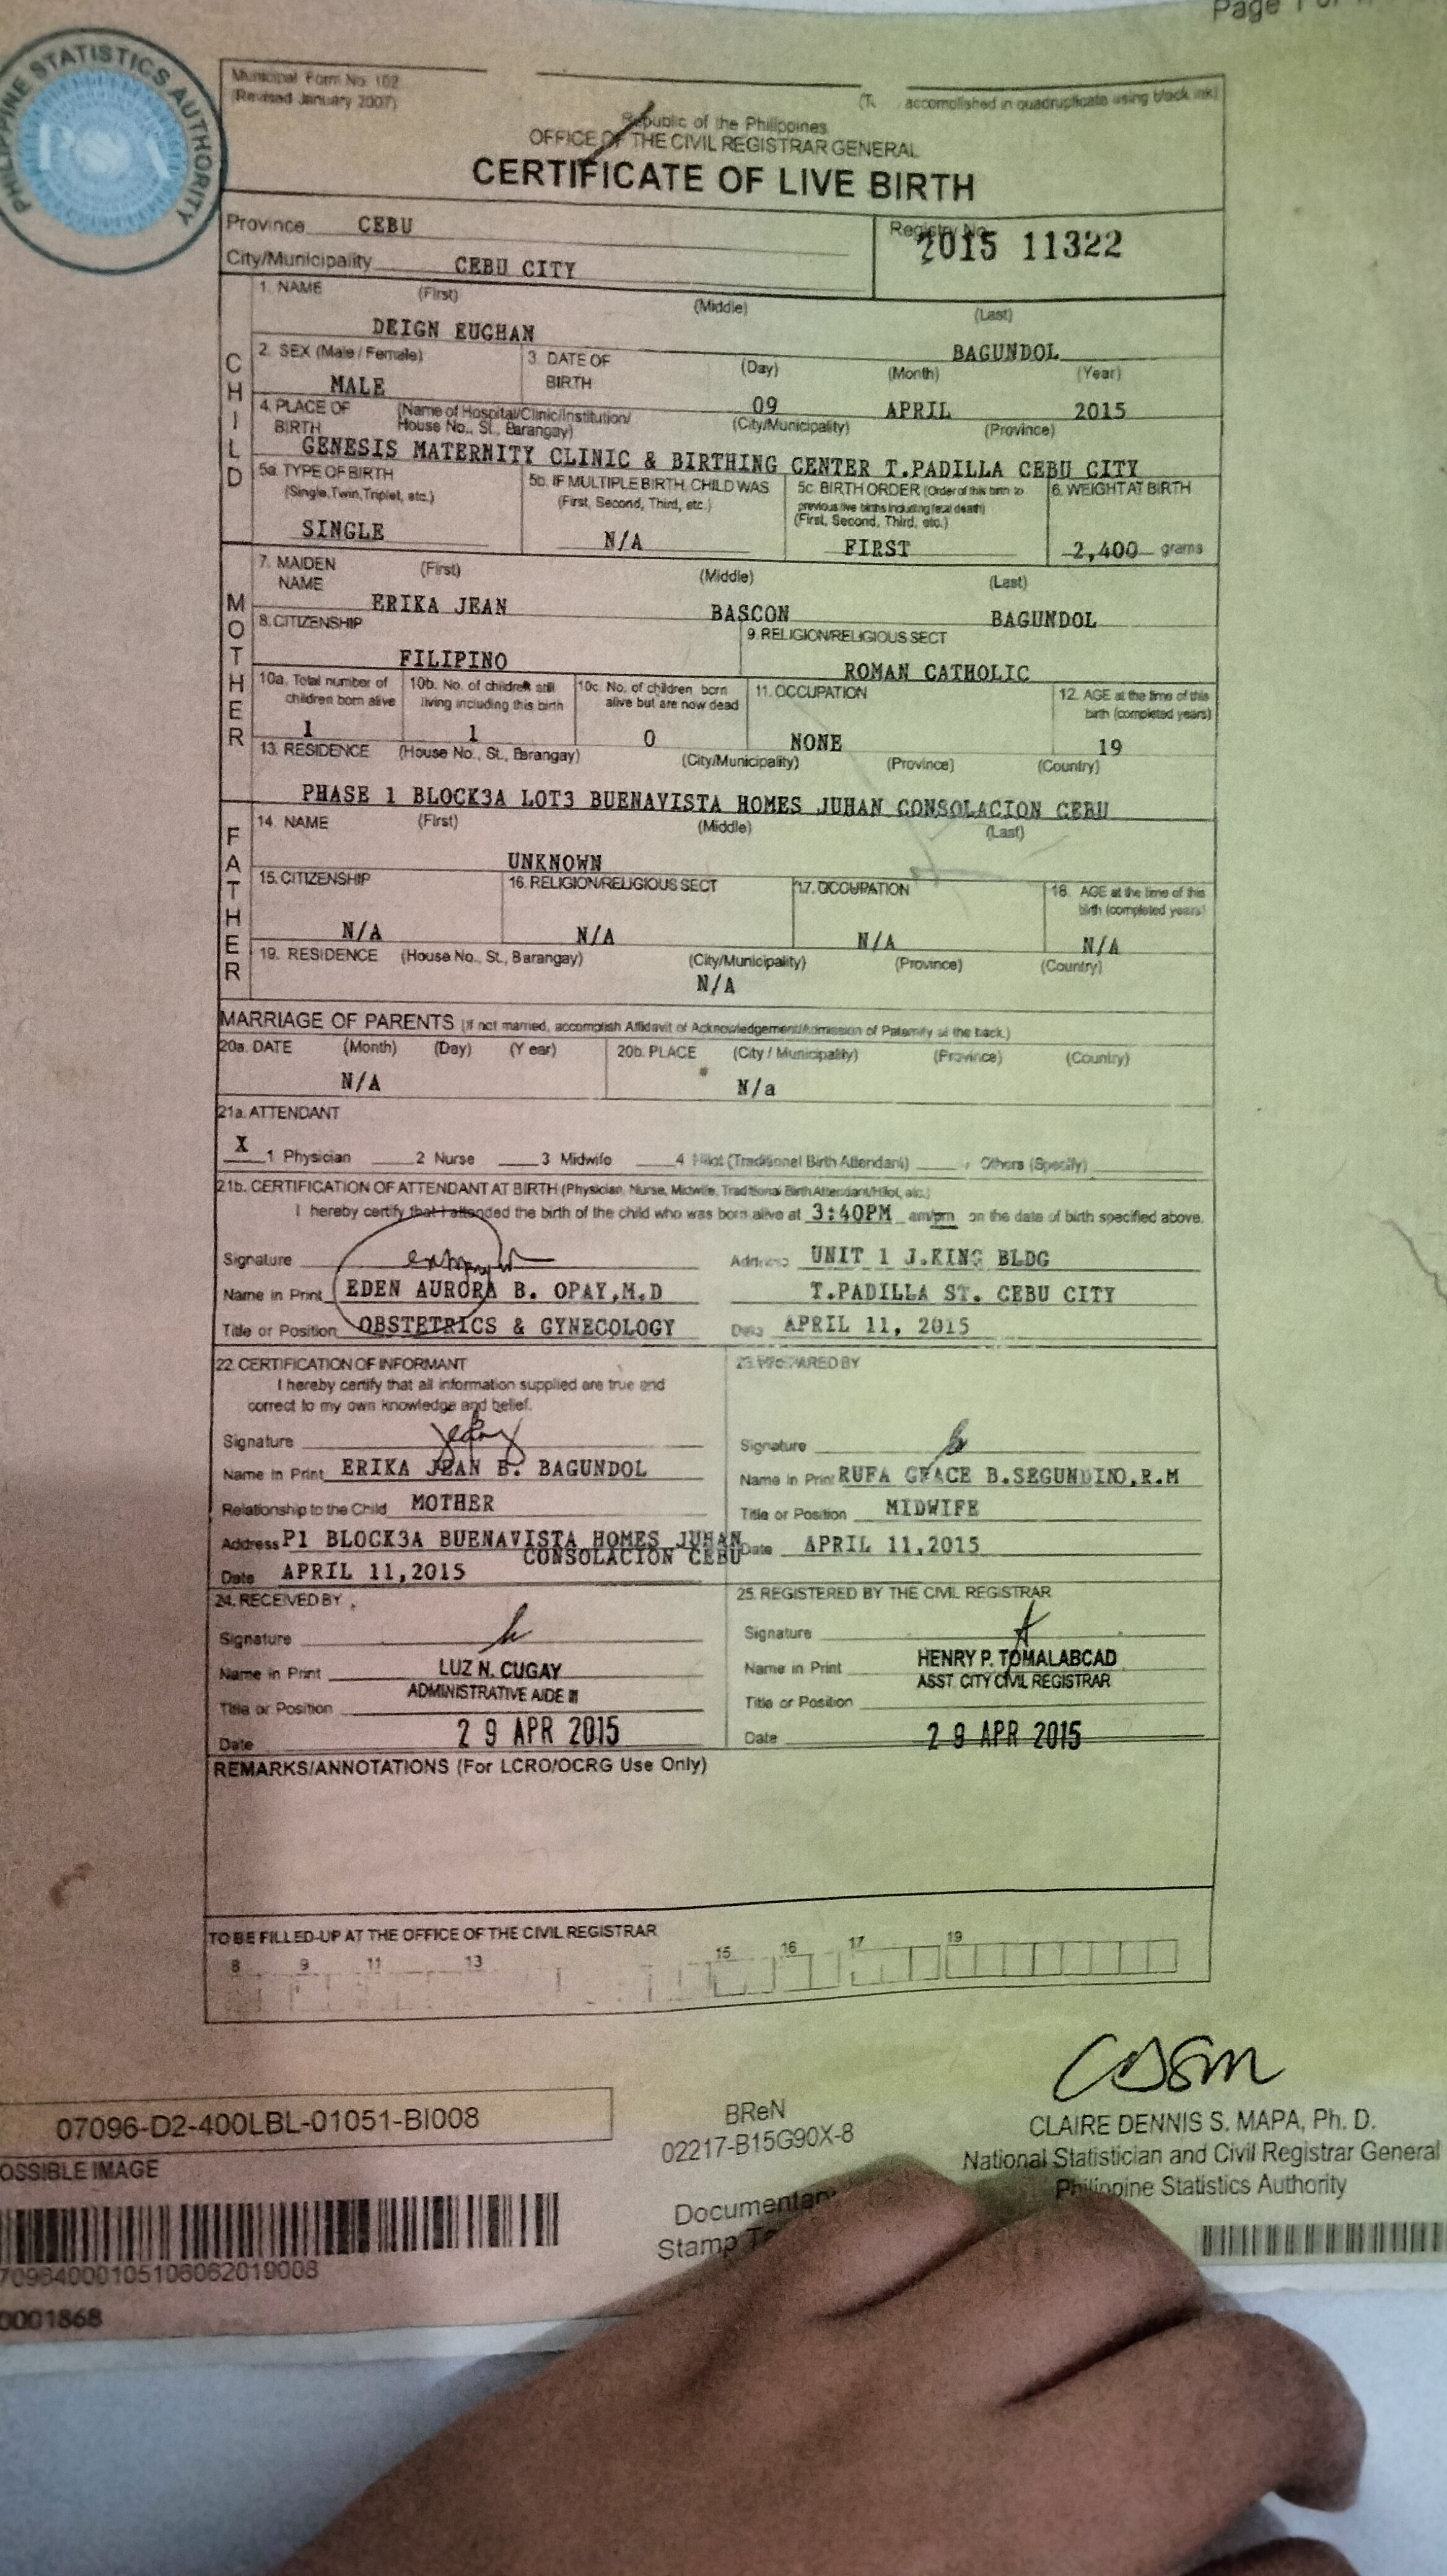 Page 1 of
PHILIPPINE STATISTICS AUTHORITY
Municipal Form No. 102
(Revised January 2007)
accomplished in quadruplicate using black ink)
Republic of the Philippines
OFFICE OF THE CIVIL REGISTRAR GENERAL
CERTIFICATE OF LIVE BIRTH
Province CEBU
Registry No.
2015 11322
City/Municipality CEBU CITY
CHILD
1. NAME (First) (Middle) (Last)
DEIGN EUGHAN BAGUNDOL
2. SEX (Male / Female) 3. DATE OF BIRTH (Day) (Month) (Year)
MALE 09 APRIL 2015
4. PLACE OF BIRTH (Name of Hospital/Clinic/Institution/ House No., St., Barangay) (City/Municipality) (Province)
GENESIS MATERNITY CLINIC & BIRTHING CENTER T.PADILLA CEBU CITY
5a. TYPE OF BIRTH (Single, Twin, Triplet, etc.)
SINGLE
5b. IF MULTIPLE BIRTH, CHILD WAS (First, Second, Third, etc.)
N/A
5c. BIRTH ORDER (Order of this birth to previous live births including fetal death) (First, Second, Third, etc.)
FIRST
6. WEIGHT AT BIRTH
2,400 grams
MOTHER
7. MAIDEN NAME (First) (Middle) (Last)
ERIKA JEAN BASCON BAGUNDOL
8. CITIZENSHIP
FILIPINO
9. RELIGION/RELIGIOUS SECT
ROMAN CATHOLIC
10a. Total number of children born alive
1
10b. No. of children still living including this birth
1
10c. No. of children born alive but are now dead
0
11. OCCUPATION
NONE
12. AGE at the time of this birth (completed years)
19
13. RESIDENCE (House No., St., Barangay) (City/Municipality) (Province) (Country)
PHASE 1 BLOCK3A LOT3 BUENAVISTA HOMES JUHAN CONSOLACION CEBU
FATHER
14. NAME (First) (Middle) (Last)
UNKNOWN
15. CITIZENSHIP
N/A
16. RELIGION/RELIGIOUS SECT
N/A
17. OCCUPATION
N/A
18. AGE at the time of this birth (completed years)
N/A
19. RESIDENCE (House No., St., Barangay) (City/Municipality) (Province) (Country)
N/A
MARRIAGE OF PARENTS (If not married, accomplish Affidavit of Acknowledgement/Admission of Paternity at the back.)
20a. DATE (Month) (Day) (Year) 20b. PLACE (City / Municipality) (Province) (Country)
N/A N/a
21a. ATTENDANT
X 1 Physician 2 Nurse 3 Midwife 4 Hilot (Traditional Birth Attendant) Others (Specify)
21b. CERTIFICATION OF ATTENDANT AT BIRTH (Physician, Nurse, Midwife, Traditional Birth Attendant/Hilot, etc.)
I hereby certify that I attended the birth of the child who was born alive at 3:40PM am/pm on the date of birth specified above.
Signature Address UNIT 1 J.KING BLDG
Name in Print EDEN AURORA B. OPAY,M.D T.PADILLA ST. CEBU CITY
Title or Position OBSTETRICS & GYNECOLOGY Date APRIL 11, 2015
22. CERTIFICATION OF INFORMANT
I hereby certify that all information supplied are true and
correct to my own knowledge and belief.
Signature
Name in Print ERIKA JEAN B. BAGUNDOL
Relationship to the Child MOTHER
Address P1 BLOCK3A BUENAVISTA HOMES JUHAN
CONSOLACION CEBU
Date APRIL 11,2015
23. PREPARED BY
Signature
Name in Print RUFA GRACE B.SEGUNDINO,R.M
Title or Position MIDWIFE
Date APRIL 11,2015
24. RECEIVED BY
Signature
Name in Print LUZ N. CUGAY
ADMINISTRATIVE AIDE III
Title or Position
Date 29 APR 2015
25. REGISTERED BY THE CIVIL REGISTRAR
Signature
Name in Print HENRY P. TOMALABCAD
ASST. CITY CIVIL REGISTRAR
Title or Position
Date 29 APR 2015
REMARKS/ANNOTATIONS (For LCRO/OCRG Use Only)
TO BE FILLED-UP AT THE OFFICE OF THE CIVIL REGISTRAR
8 9 11 13 15 16 17 19
07096-D2-400LBL-01051-BI008
OSSIBLE IMAGE
70964000105106062019008
0001868
BReN
02217-B15G90X-8
Documentary
Stamp
CLAIRE DENNIS S. MAPA, Ph. D.
National Statistician and Civil Registrar General
Philippine Statistics Authority